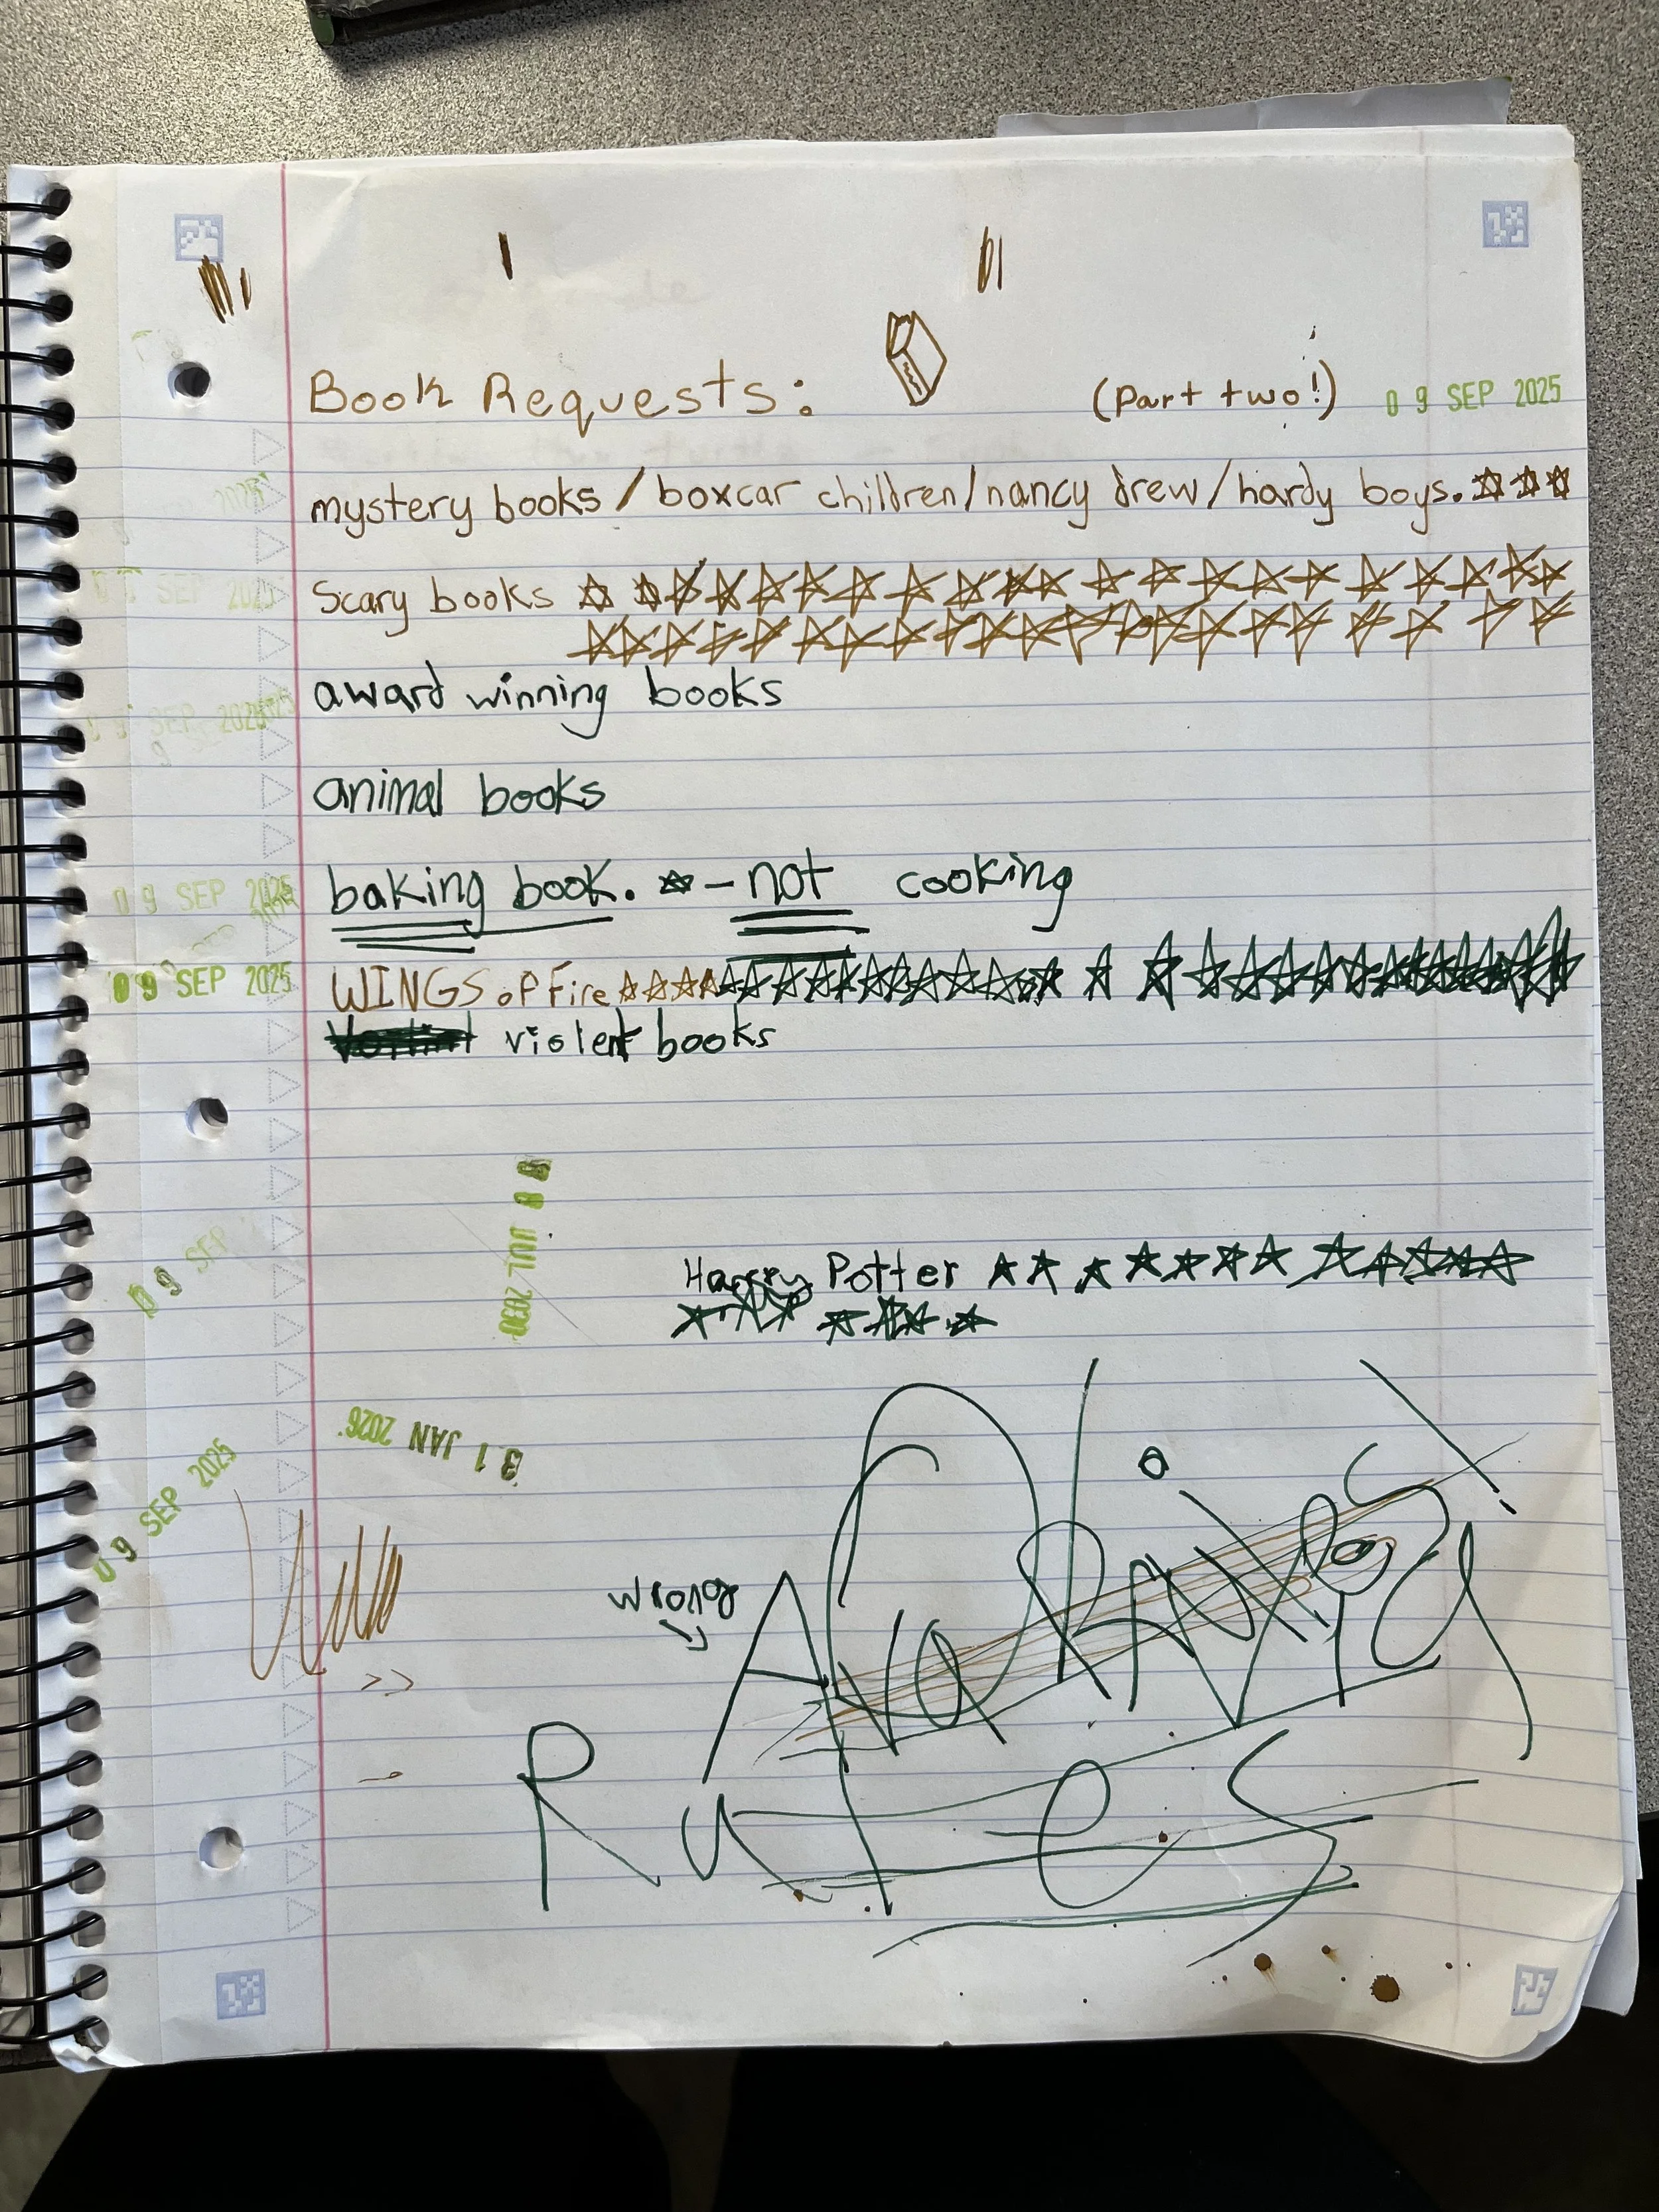 Book Requests: (part two!) 09 SEP 2025
mystery books / boxcar children / nancy drew / hardy boys.
2025
Scary books
SEP 2025
award winning books
SEP 2025
animal books
baking book. - not cooking
09 SEP 2025
WINGS of Fire
09 SEP 2025
violent books
08 JUL 2030
09 SEP
Harry Potter
31 JAN 2026
09 SEP 2025
wrong
Ava
Rules